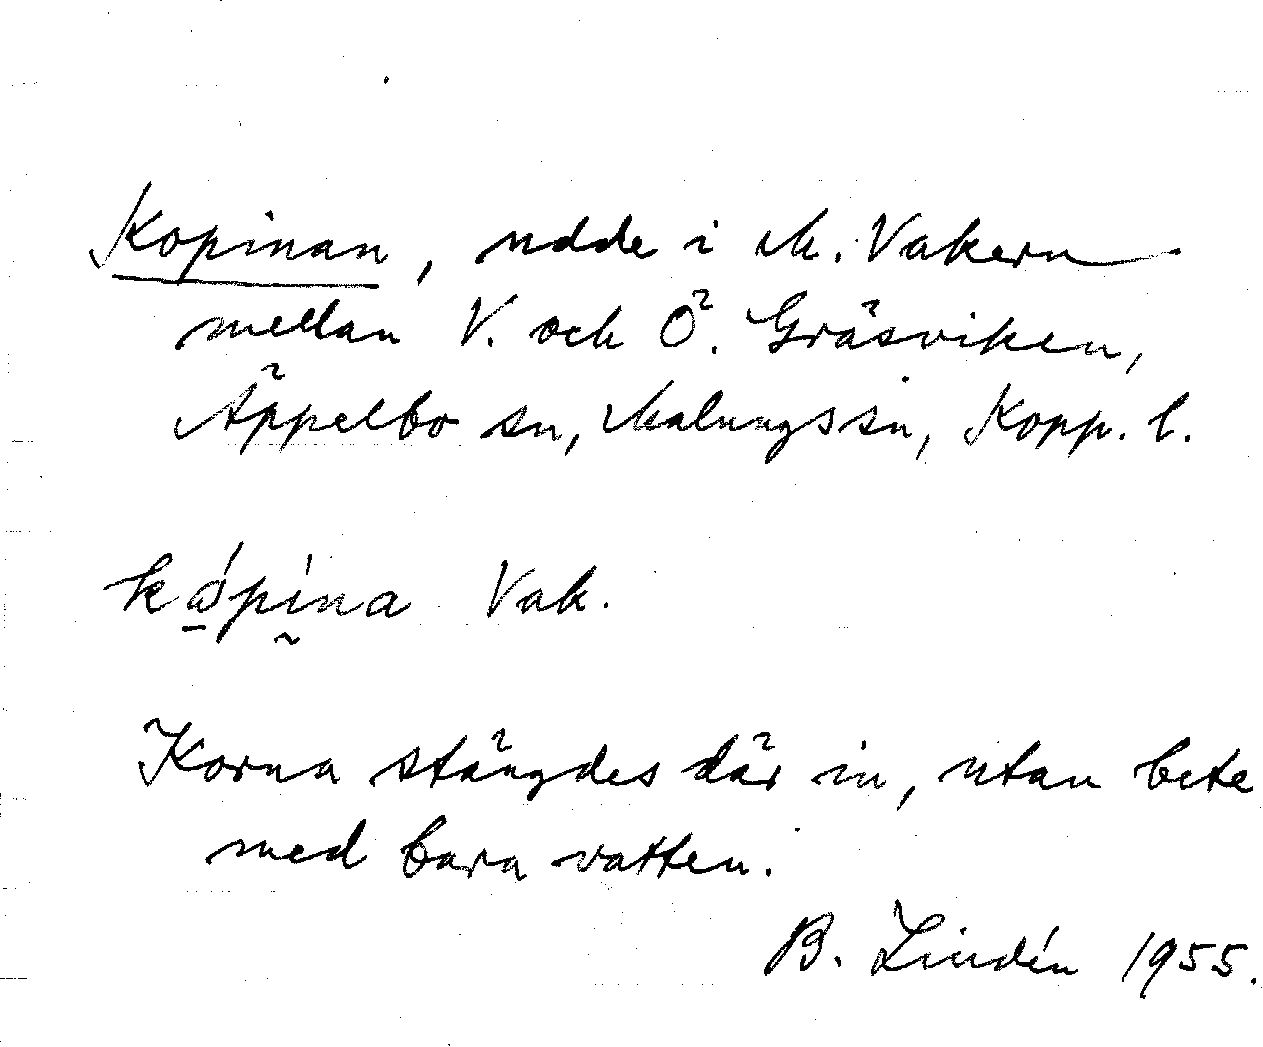 Kopinan, udde i M. Vakern
mellan V. och Ö. Gräsviken,
Äppelbo sn, Malungs sn, Kopp. l.
kǻpína Vak.
Korna stängdes där in, utan bete
med bara vatten.
B. Lindén 1955.